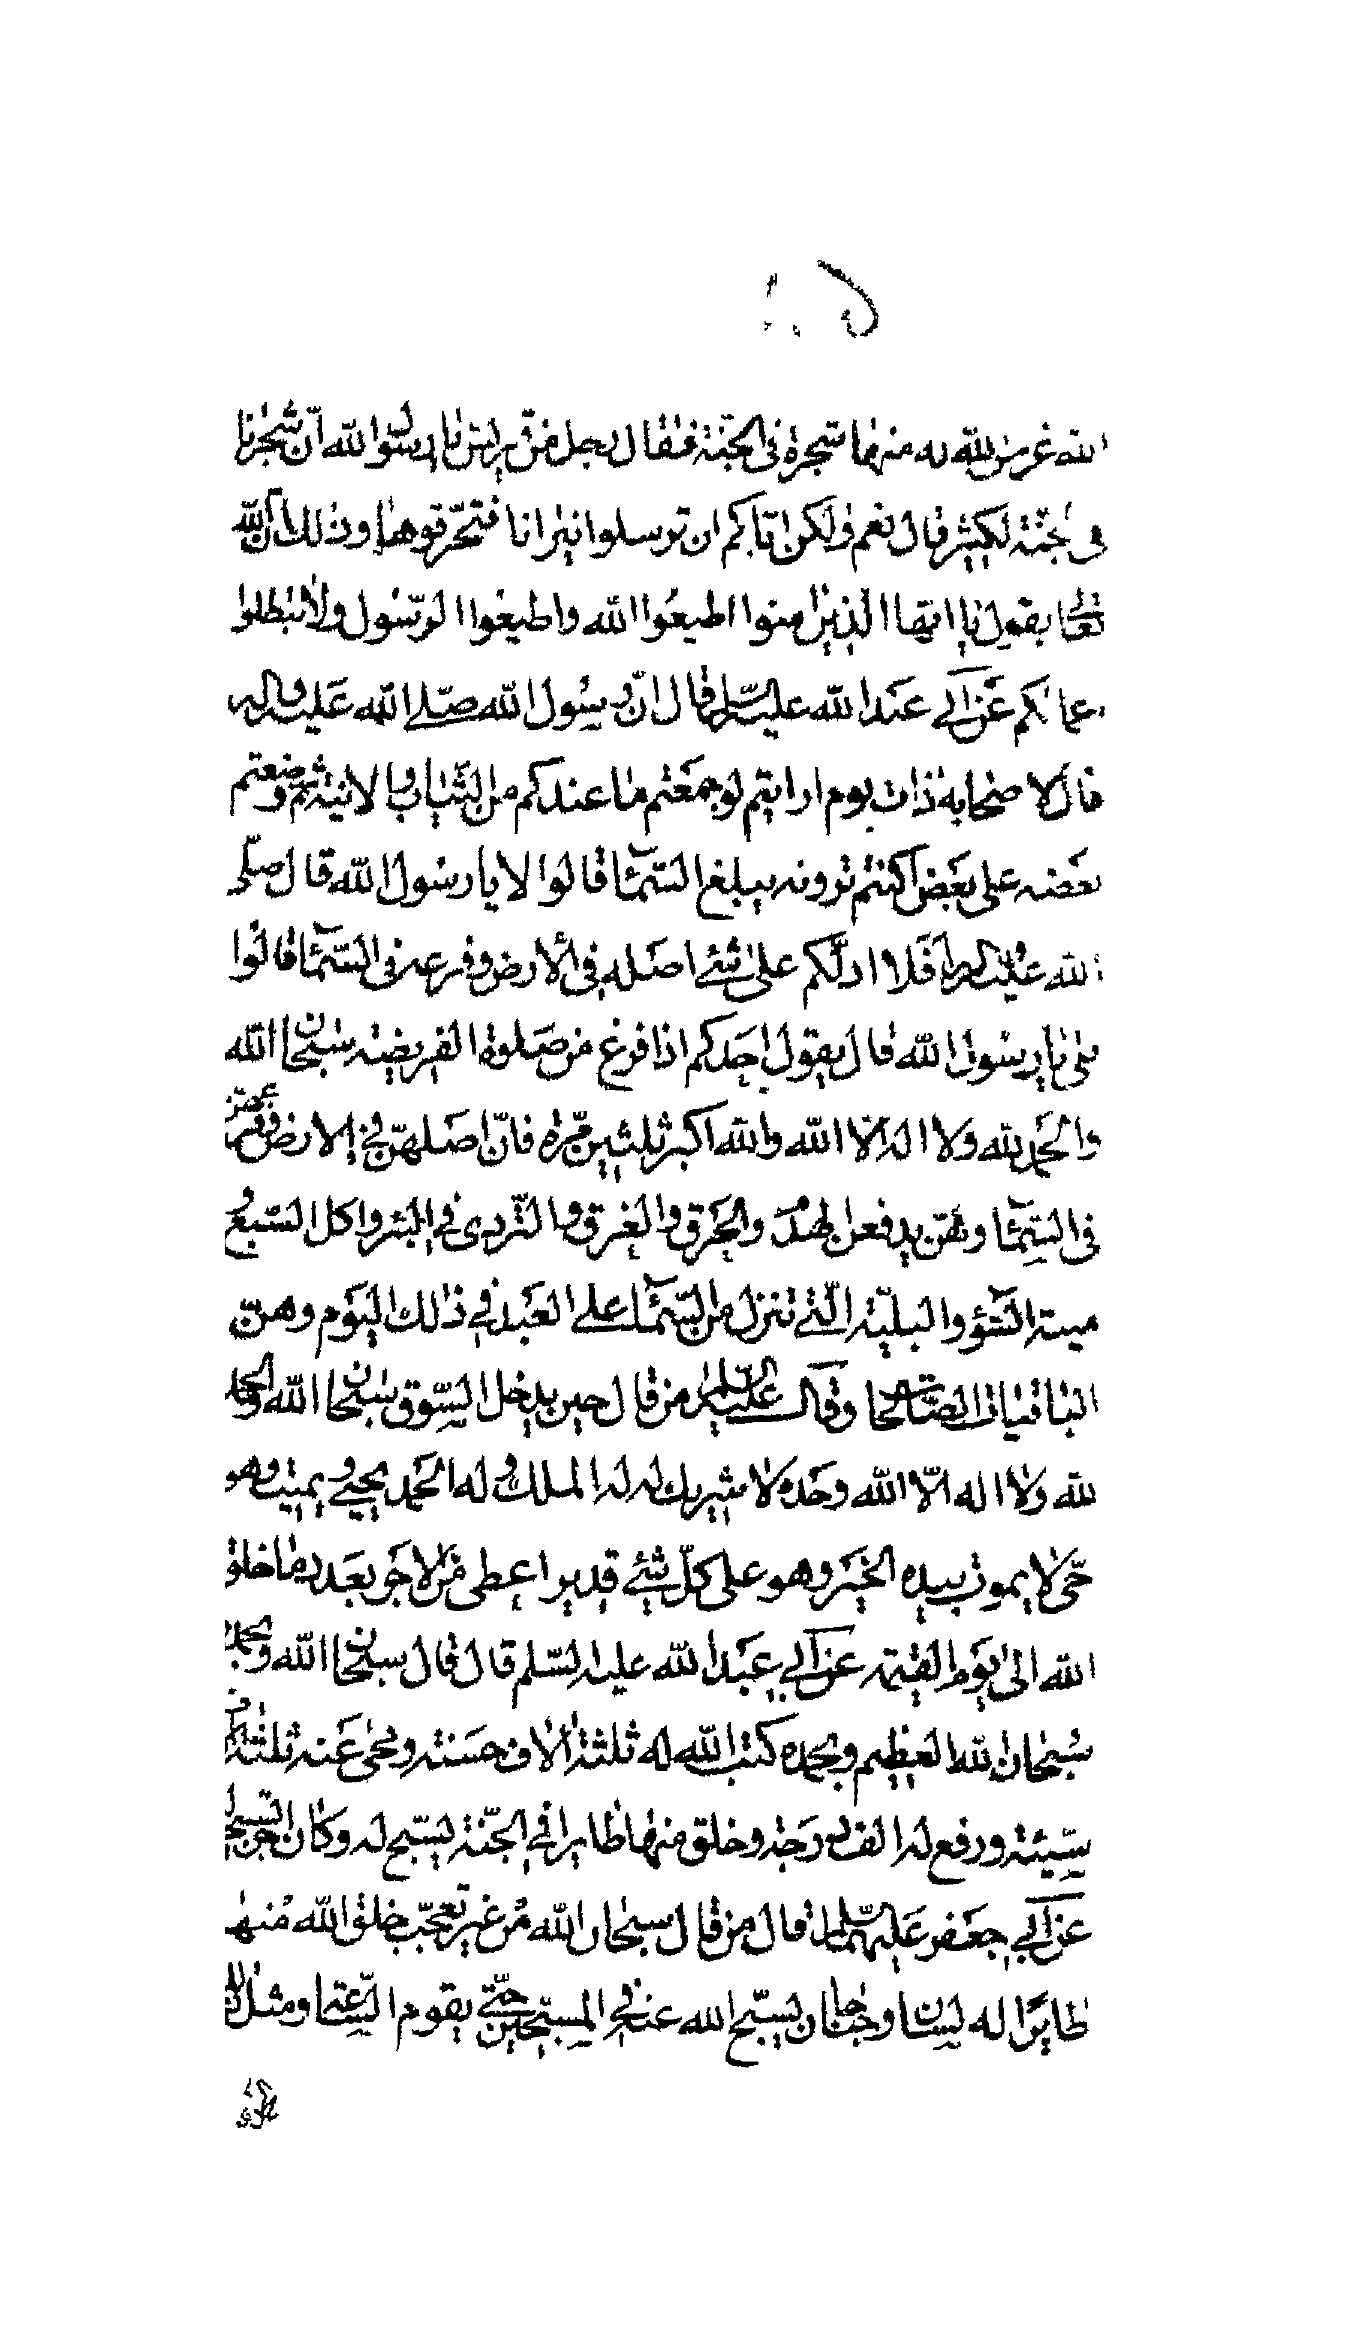 الله غرس الله له منها شجرة في الجنّة فقال رجل من قريش يا رسول الله انّ شجرنا
في الجنّة لكثير قال نعم ولكن ايّاكم ان ترسلوا نيرانا فتحرّقوها وذلك انّ الله
تعالى يقول يا ايّها الذين امنوا اطيعوا الله واطيعوا الرّسول ولا تبطلوا
اعمالكم عن ابي عبد الله عليه السّلم قال انّ رسول الله صلّى الله عليه واله
قال لاصحابه ذات يوم ارايتم لو جمعتم ما عندكم من الثّياب والانية ثم وضعتم
بعضه على بعض اكنتم ترونه يبلغ السّمآء قالوا لا يا رسول الله قال صلّى
الله عليه واله افلا ادلّكم على شئ اصله في الأرض وفرعه في السّمآء قالوا
بلى يا رسول الله قال يقول احدكم اذا فرغ من صلوة الفريضة سبحان الله
والحمد لله ولا اله الّا الله والله اكبر ثلثين مرّة فانّ اصلهنّ في الارض وفرعهنّ
في السّمآء وهنّ يدفعن الهدم والحرق والغرق والتّردى في البئر واكل السّبع و
ميتة السّوء والبليّة الّتي تنزل من السّمآء على العبد في ذلك اليوم وهنّ
الباقيات الصّالحات وقال عليه السّلم من قال حين يدخل السّوق سبحان الله والحمد
لله ولا اله الّا الله وحده لا شريك له له الملك وله الحمد يحيي ويميت وهو
حيّ لا يموت بيده الخير وهو على كلّ شئ قدير اعطى من الاجر بعدد ما خلق
الله الى يوم القيمة عن ابي عبد الله عليه السّلم قال قال سبحان الله وبحمده
سبحان الله العظيم وبحمده كتب الله له ثلثة الاف حسنة ومحى عنه ثلثة الاف
سيّئة ورفع له الف درجة وخلق منها طايرا في الجنّة يسبّح له وكان اجر تسبيحه له
عن ابي جعفر عليهما السّلم قال من قال سبحان الله من غير تعجّب خلق الله منها
طايرًا له لسان وجناحان يسبّح الله عنه في المسبّحين حتّى يقوم السّاعة ومثل ذلك